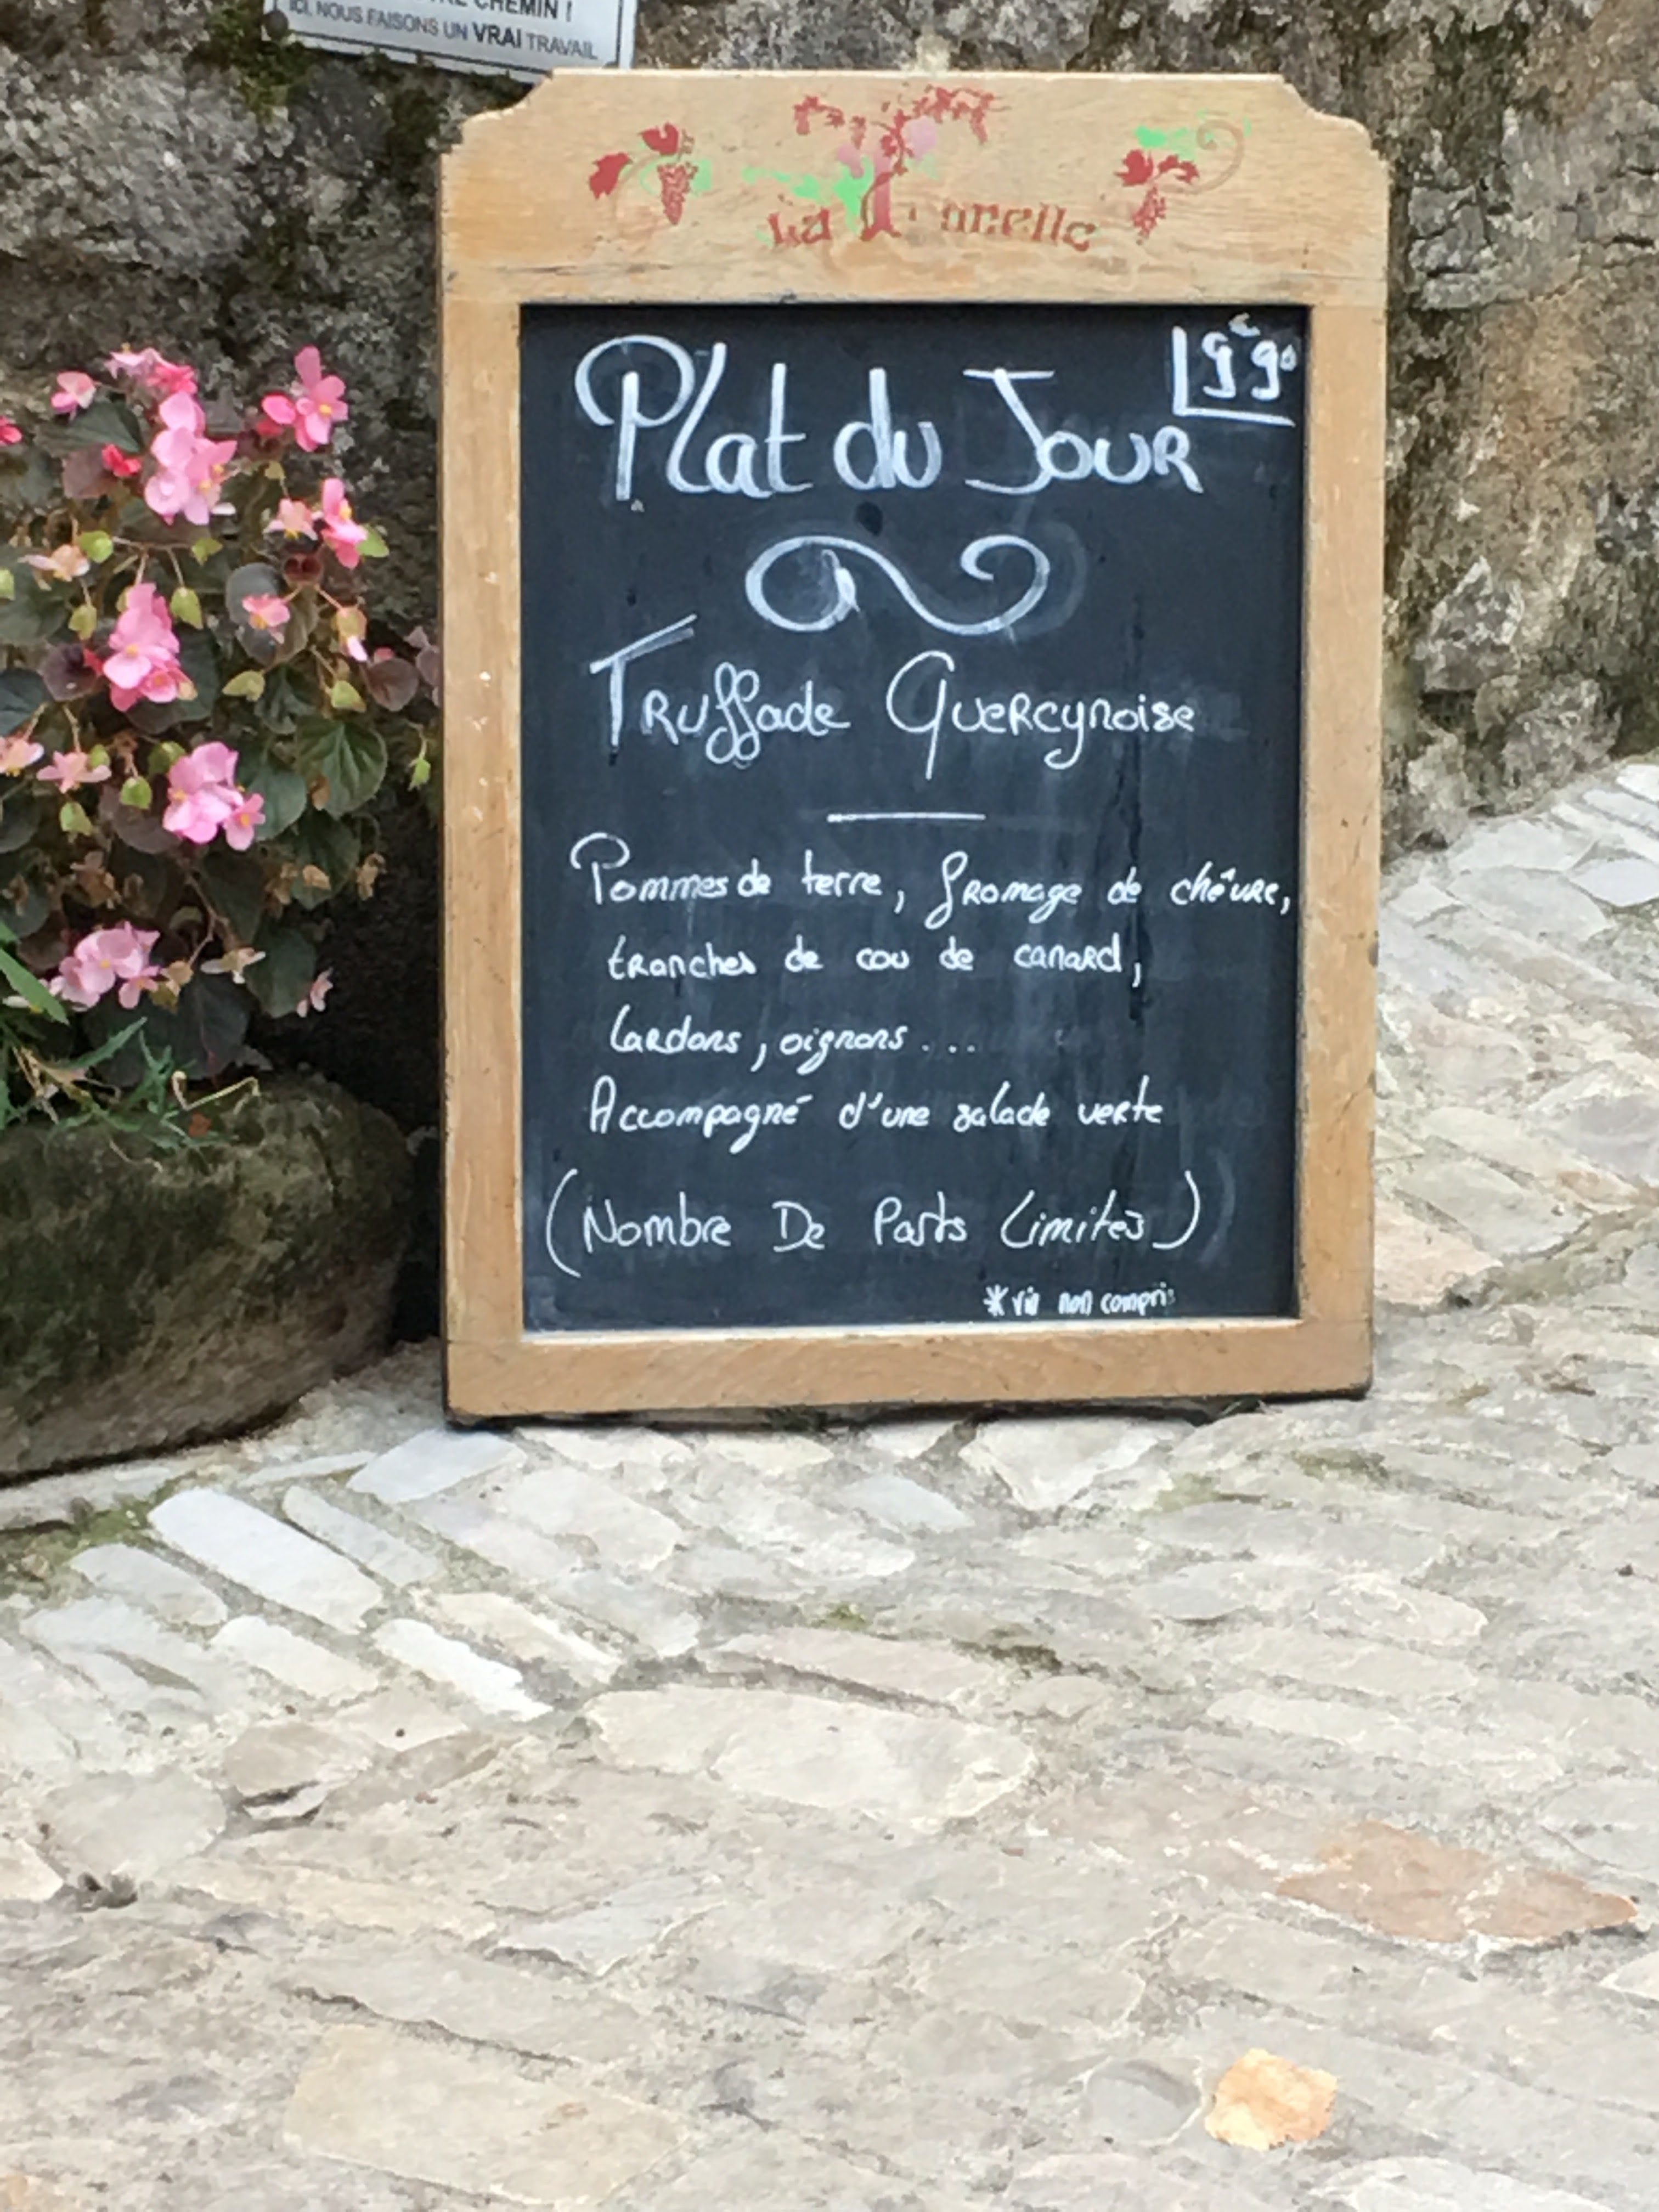 CHEMIN !
ICI, NOUS FAISONS UN VRAI TRAVAIL
La
9€90
Plat du Jour
Truffade Quercynoise
Pommes de terre, fromage de chêvre,
tranches de cou de canard,
lardons, oignons...
Accompagné d'une salade verte
(Nombre De Parts Limités)
*vin non compris